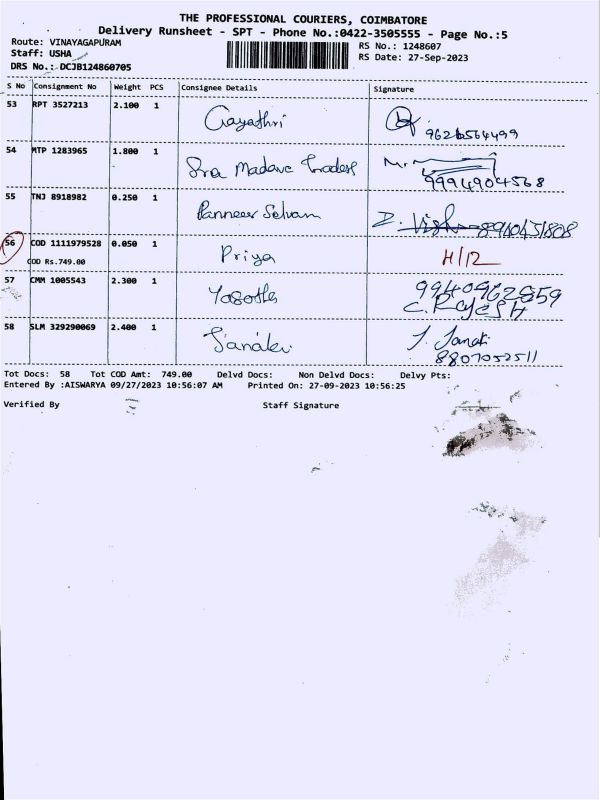 THE PROFESSIONAL COURIERS, COIMBATORE
Delivery Runsheet - SPT - Phone No.:0422-3505555 - Page No.:5
Route: VINAYAGAPURAM RS No.: 1248607
Staff: USHA RS Date: 27-Sep-2023
DRS No.: DCJB124860705
S No Consignment No Weight PCS Consignee Details Signature
53 RPT 3527213 2.100 1 Gayathri
54 MTP 1283965 1.800 1 Sra Madave Traders 9994904568
55 TNJ 8918982 0.250 1 Panneer Selvam
56 COD 1111979528 0.050 1 Priya H/12
COD Rs.749.00
57 CMM 1005543 2.300 1 Yasotha 9940962859
C. RAJESH
58 SLM 329290069 2.400 1 Janaki J. Janaki
8807052511
Tot Docs: 58 Tot COD Amt: 749.00 Delvd Docs: Non Delvd Docs: Delvy Pts:
Entered By :AISWARYA 09/27/2023 10:56:07 AM Printed On: 27-09-2023 10:56:25
Verified By Staff Signature